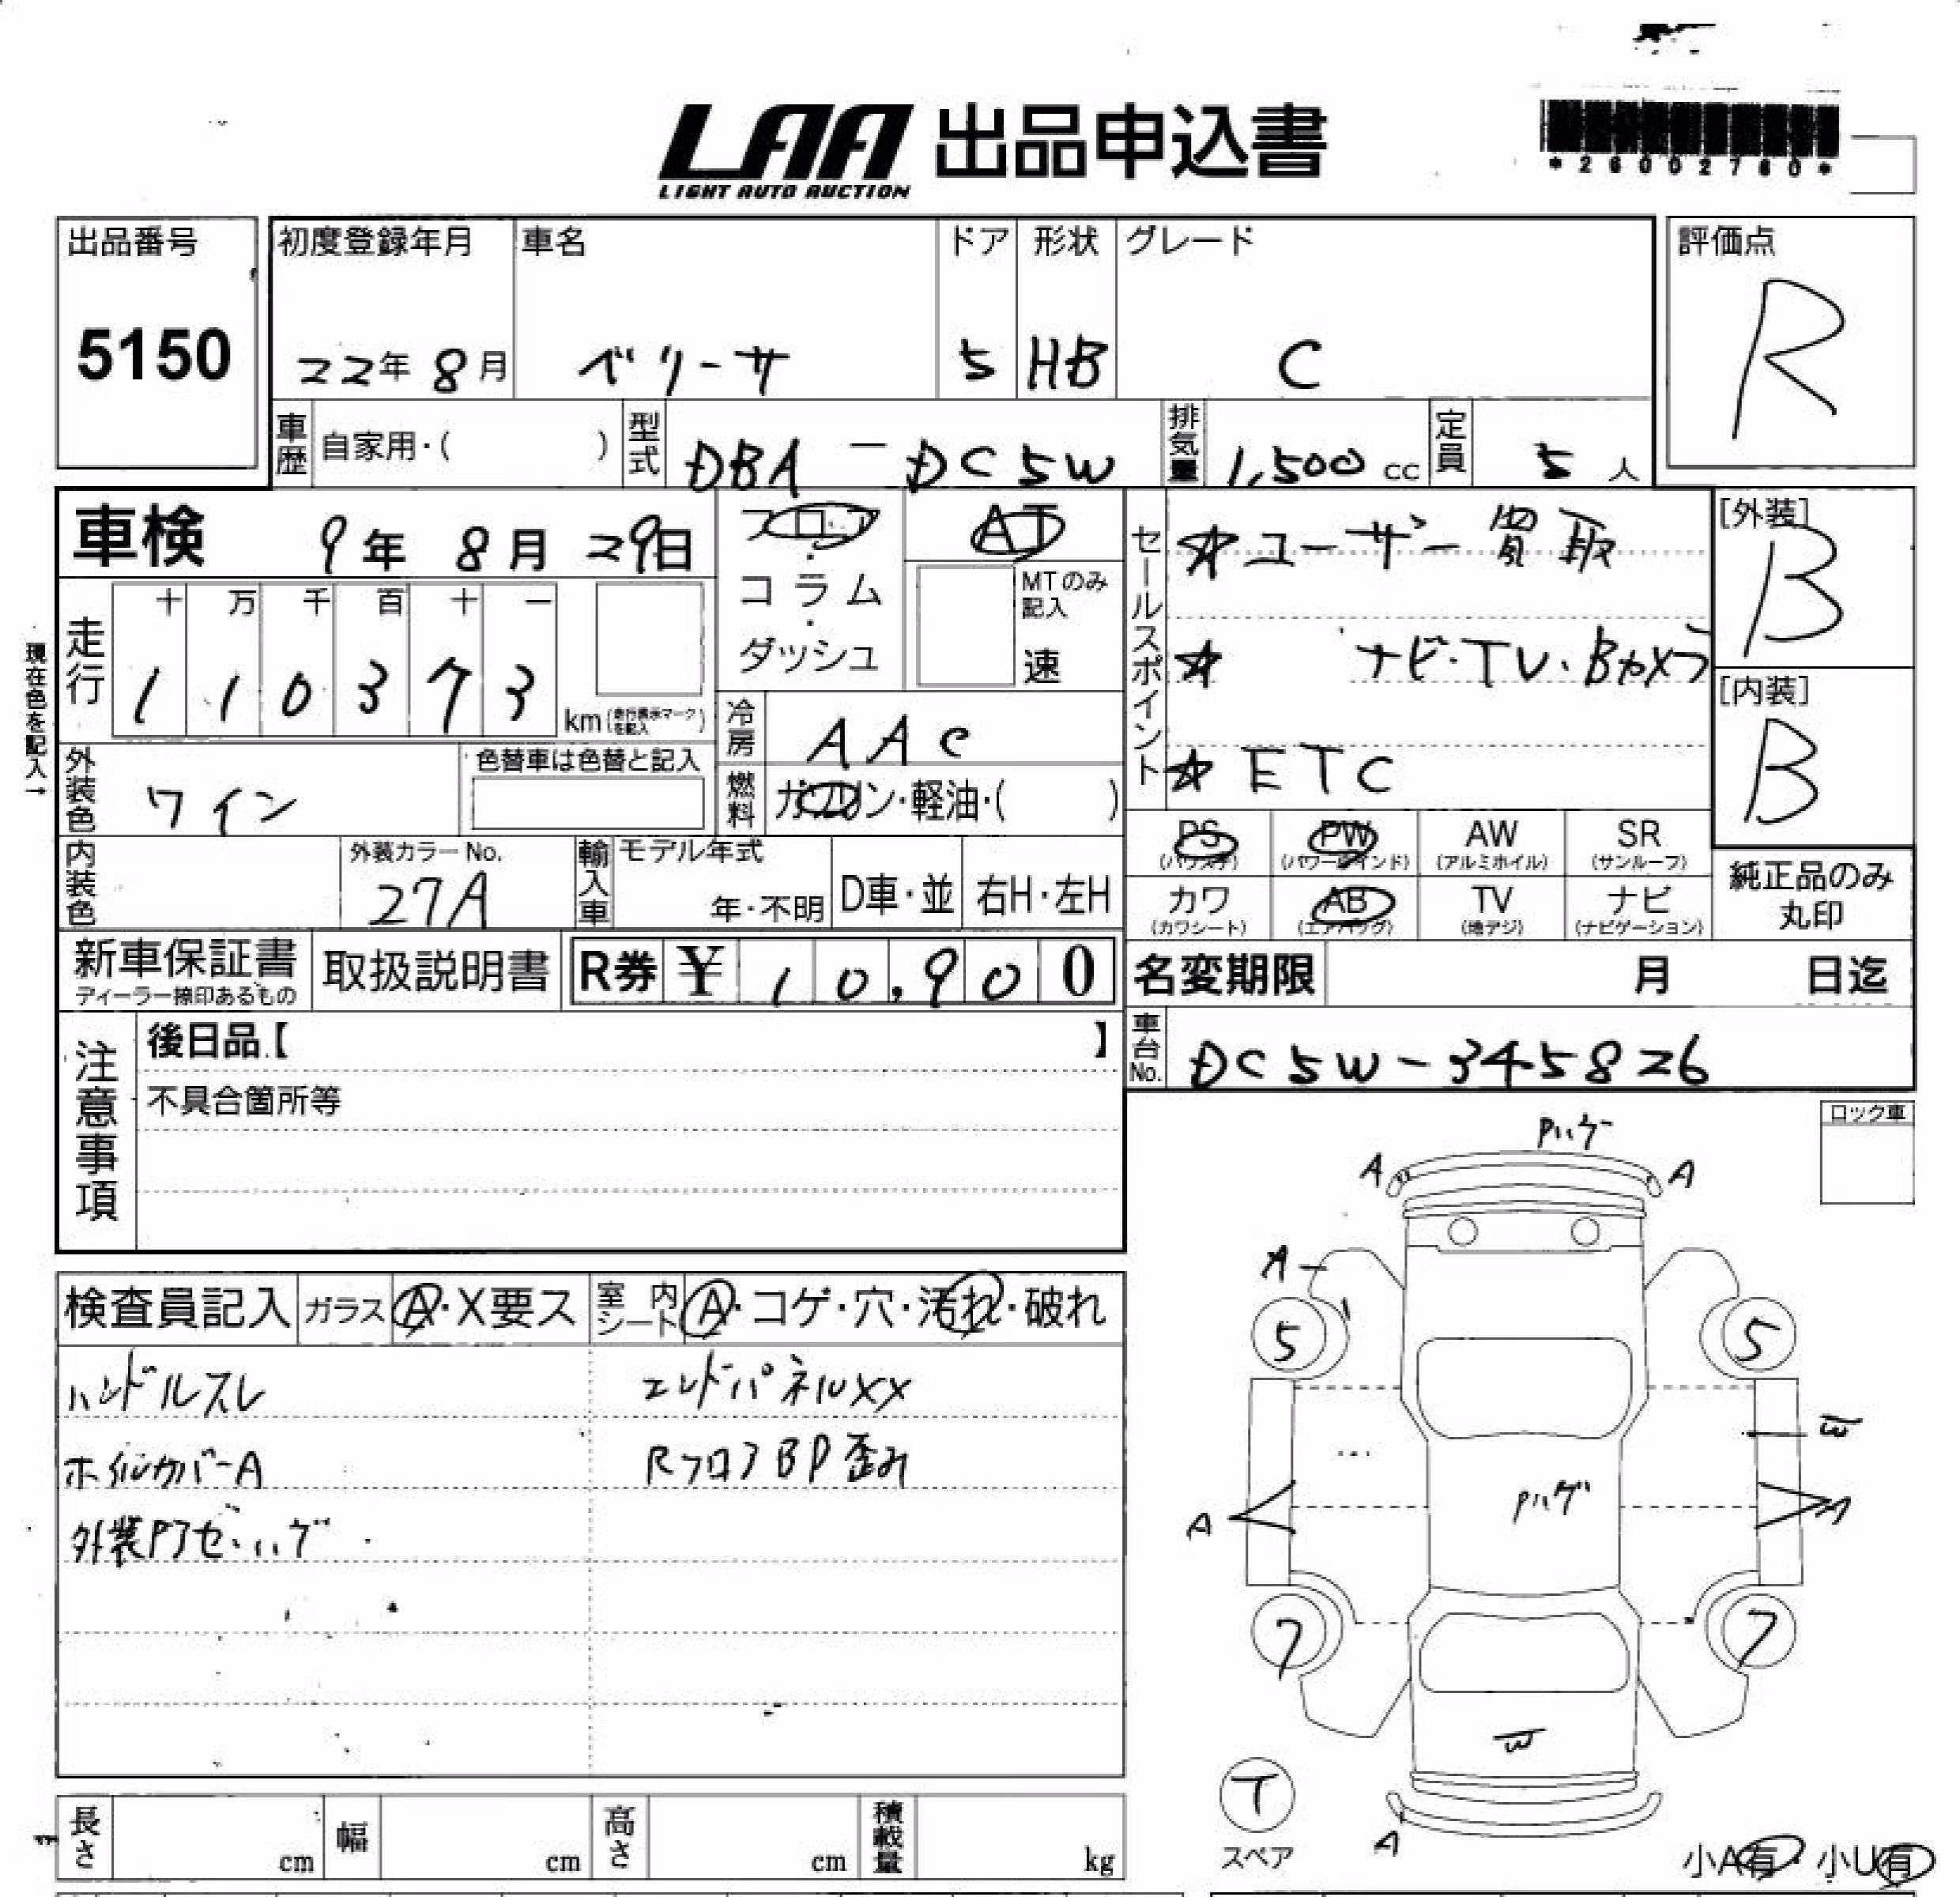 LAA 出品申込書
LIGHT AUTO AUCTION
*26002760*
出品番号
5150
初度登録年月
22年 8月
車名
ベリーサ
ドア
5
形状
HB
グレード
C
評価点
R
車歴 自家用・( )
型式 DBA-DC5W
排気量 1,500 cc
定員 5 人
車検 9年 8月 29日
フロア・コラム・ダッシュ
AT
MTのみ記入
速
セールスポイント
☆ユーザー買取
☆ ナビ・TV・Bカメラ
☆ETC
[外装]
B
[内装]
B
現在色を記入→
走行
十 万 千 百 十 一
1 1 0 3 7 3
km(走行表示マークを記入)
冷房 AAC
燃料 ガソリン・軽油・( )
外装色 ワイン
色替車は色替と記入
内装色
外装カラーNo.
27A
輸入車
モデル年式
年・不明
D車・並
右H・左H
PS (パワステ)
PW (パワーウインド)
AW (アルミホイル)
SR (サンルーフ)
カワ (カワシート)
AB (エアバッグ)
TV (地デジ)
ナビ (ナビゲーション)
純正品のみ丸印
新車保証書
ディーラー捺印あるもの
取扱説明書
R券 ¥ 10,900
名変期限 月 日迄
車台No. DC5W-345826
注意事項
後日品【 】
不具合箇所等
ロック車
検査員記入
ガラス A・X要ス
室内シート A・コゲ・穴・汚れ・破れ
ハンドルスレ
ホイルカバーA
エンドパネルXX
RフロアBP歪み
Pハゲ
A A
A
5 5
W
Pハゲ
A A
7 7
W
T
スペア
A
小A有・小U有
長さ cm
幅 cm
高さ cm
積載量 kg